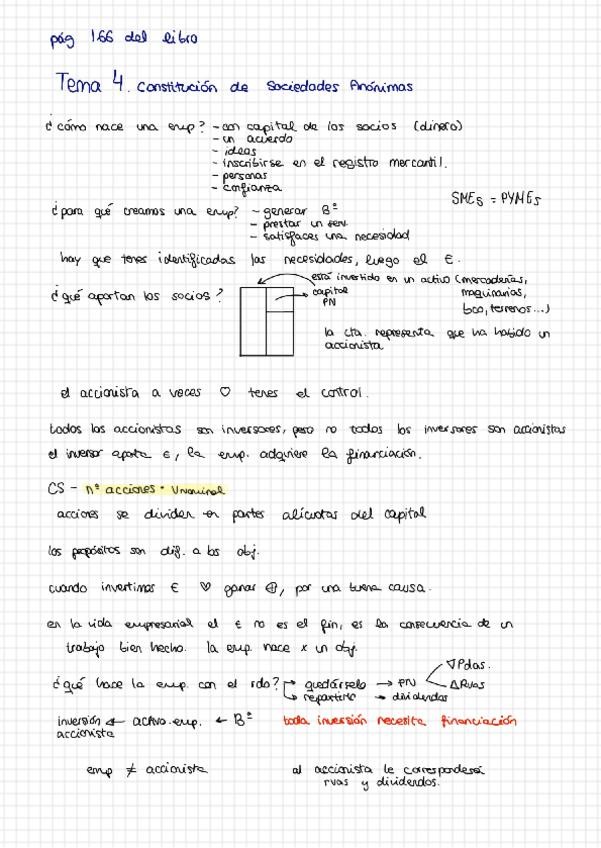 pág 166 del libro
Tema 4. Constitución de Sociedades Anónimas
¿cómo nace una emp? - con capital de los socios (dinero)
- un acuerdo
- ideas
- inscribirse en el registro mercantil.
- personas
- confianza
SMEs = PYMEs
¿para qué creamos una emp? - generar Bº
- prestar un serv.
- satisfaces una necesidad
hay que tener identificadas las necesidades, luego el €.
¿qué aportan los socios?
está invertido en un activo (mercaderías,
maquinarias,
bco, terrenos...)
capital
PN
la cta. representa que ha habido un
accionista
el accionista a veces ♡ tener el control.
todos los accionistas son inversores, pero no todos los inversores son accionistas
el inversor aporta €, la emp. adquiere la financiación.
CS - nº acciones · Vnominal
acciones se dividen en partes alícuotas del capital
los propósitos son dif. a los obj.
cuando invertimos € ♡ ganar ⊕, por una buena causa.
en la vida empresarial el € no es el fin, es la consecuencia de un
trabajo bien hecho. la emp. nace x un obj.
¿qué hace la emp. con el rdo? → quedárselo → PN
∇Pdas.
ΔRvas
↳ repartirlo → dividendos
inversión ← activo emp. ← Bº
accionista
toda inversión necesita financiación
emp ≠ accionista
al accionista le corresponden
rvas y dividendos.